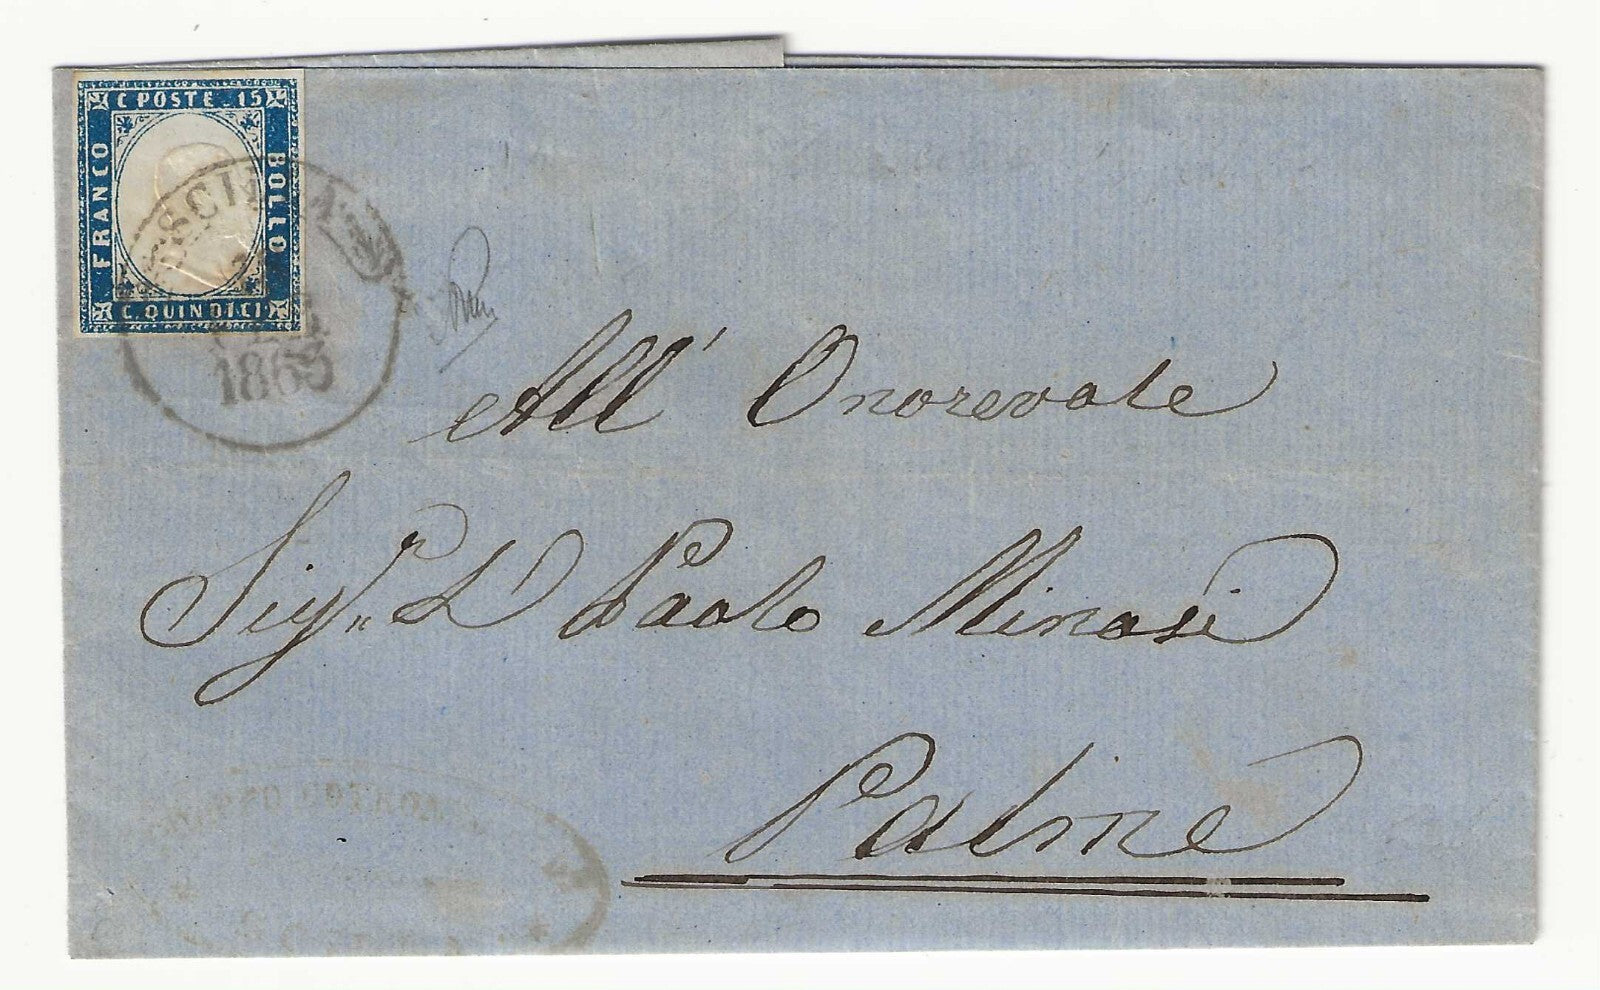 C POSTE 15
FRANCO
BOLLO
C. QUINDICI
1863
All' Onorevole
Sigr. D Paolo Minasi
Palme